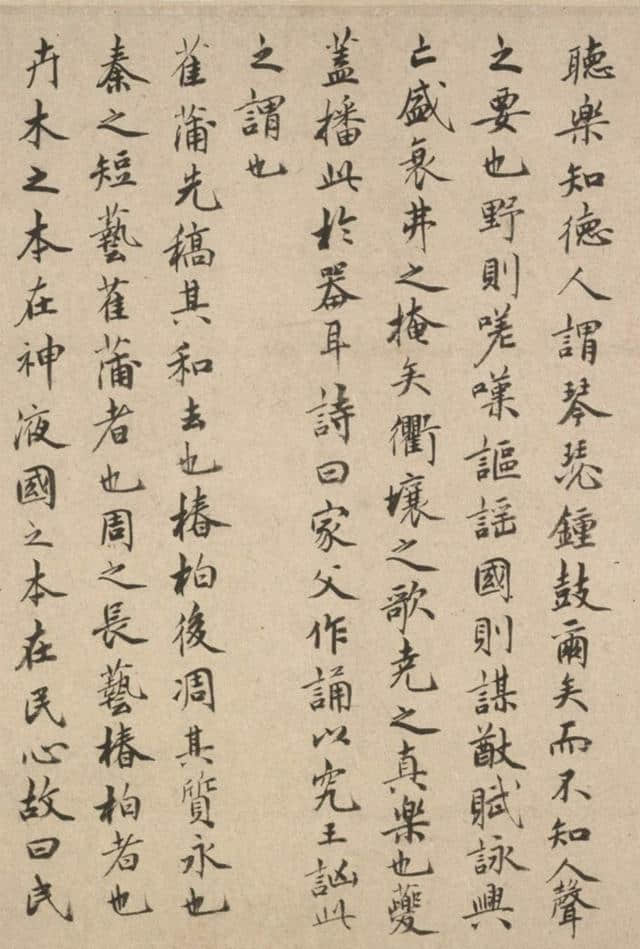 聽樂知德人謂琴瑟鍾鼓爾矣而不知人聲
之要也野則嗟嘆謳謠國則謀猷賦詠興
亡盛衰弗之掩矣衢壤之歌堯之真樂也夔
蓋播此於器耳詩曰家父作誦以究王訩此
之謂也
萑蒲先稿其和去也椿柏後凋其質永也
秦之短藝萑蒲者也周之長藝椿柏者也
卉木之本在神液國之本在民心故曰民